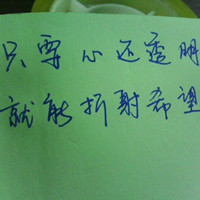 只要心还透明
就能折射希望